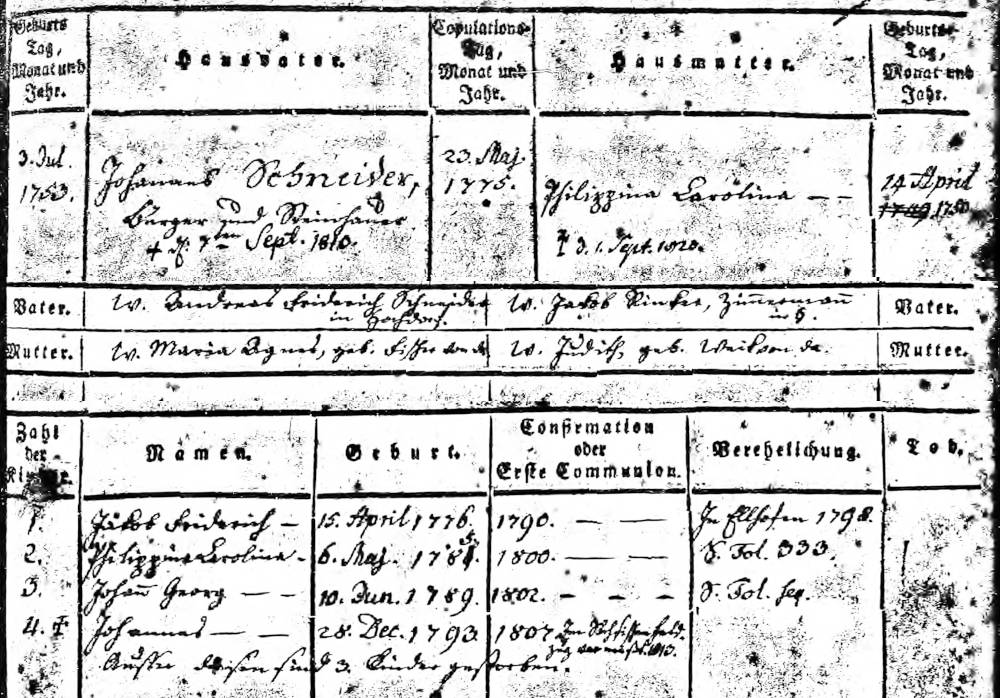 Geburts Tag, Monat und Jahr.
Hausvater.
Copulations Tag, Monat und Jahr.
Hausmutter.
Geburts Tag, Monat und Jahr.
3. Jul. 1753.
Johannes Schneider,
Bürger und Steinhauer
† d. 7ten Sept. 1810.
23. Maj. 1775.
Philippina Carolina — —
† d. 1. Sept. 1820.
14 April
1749. 1750
Vater.
W. Andreas Friderich Schneider
in Hochdorf.
W. Jakob Rinker, Zimmermann
in H.
Vater.
Mutter.
W. Maria Agnes, geb. Fischer von da
W. Judith, geb. von da.
Mutter.
Zahl der Kinder.
Namen.
Geburt.
Confirmation oder Erste Communion.
Verehelichung.
Tod.
1. Jakob Friderich — 15. April 1776. 1790. — — In Elhofen 1798.
2. Philippina Carolina - 6. Maj. 1785. 1800. — — S. Fol. 333.
3. Johann Georg — — 10. Jun. 1789. 1802. - - - S. Fol. seq.
4. † Johannes — — 28. Dec. 1793 1807. Im Feld-
zug vermißt. 1813.
Ausser diesen sind 3. Kinder gestorben.